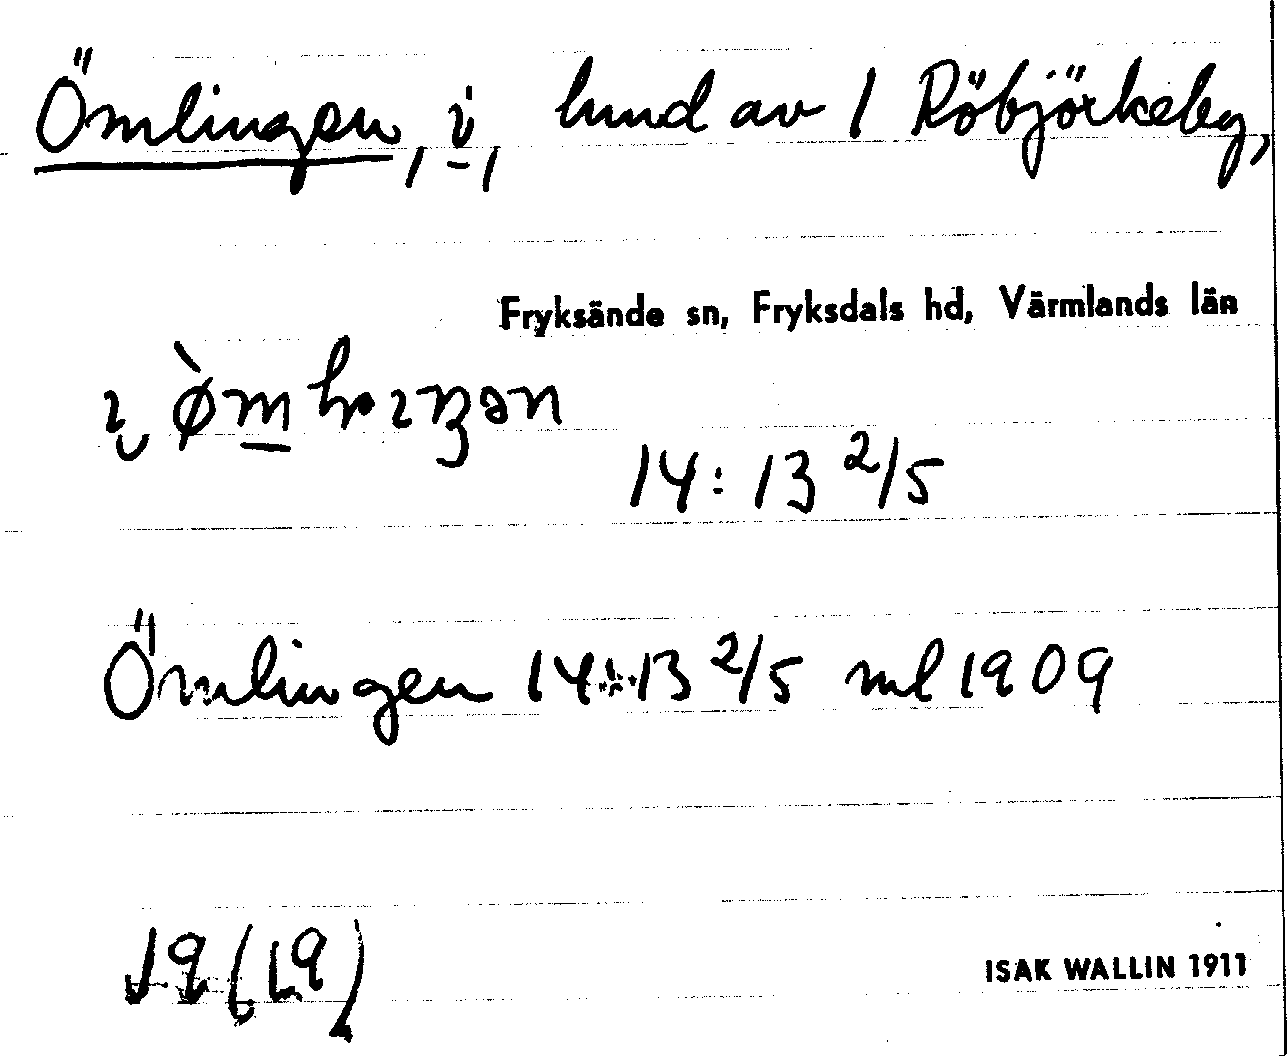 Ömlingen, i, hmd av 1 Röbjörkeby,
Fryksände sn, Fryksdals hd, Värmlands län
14:13 2/5
Ömlingen 14:13 2/5 ml 1909
19 (19)
ISAK WALLIN 1911